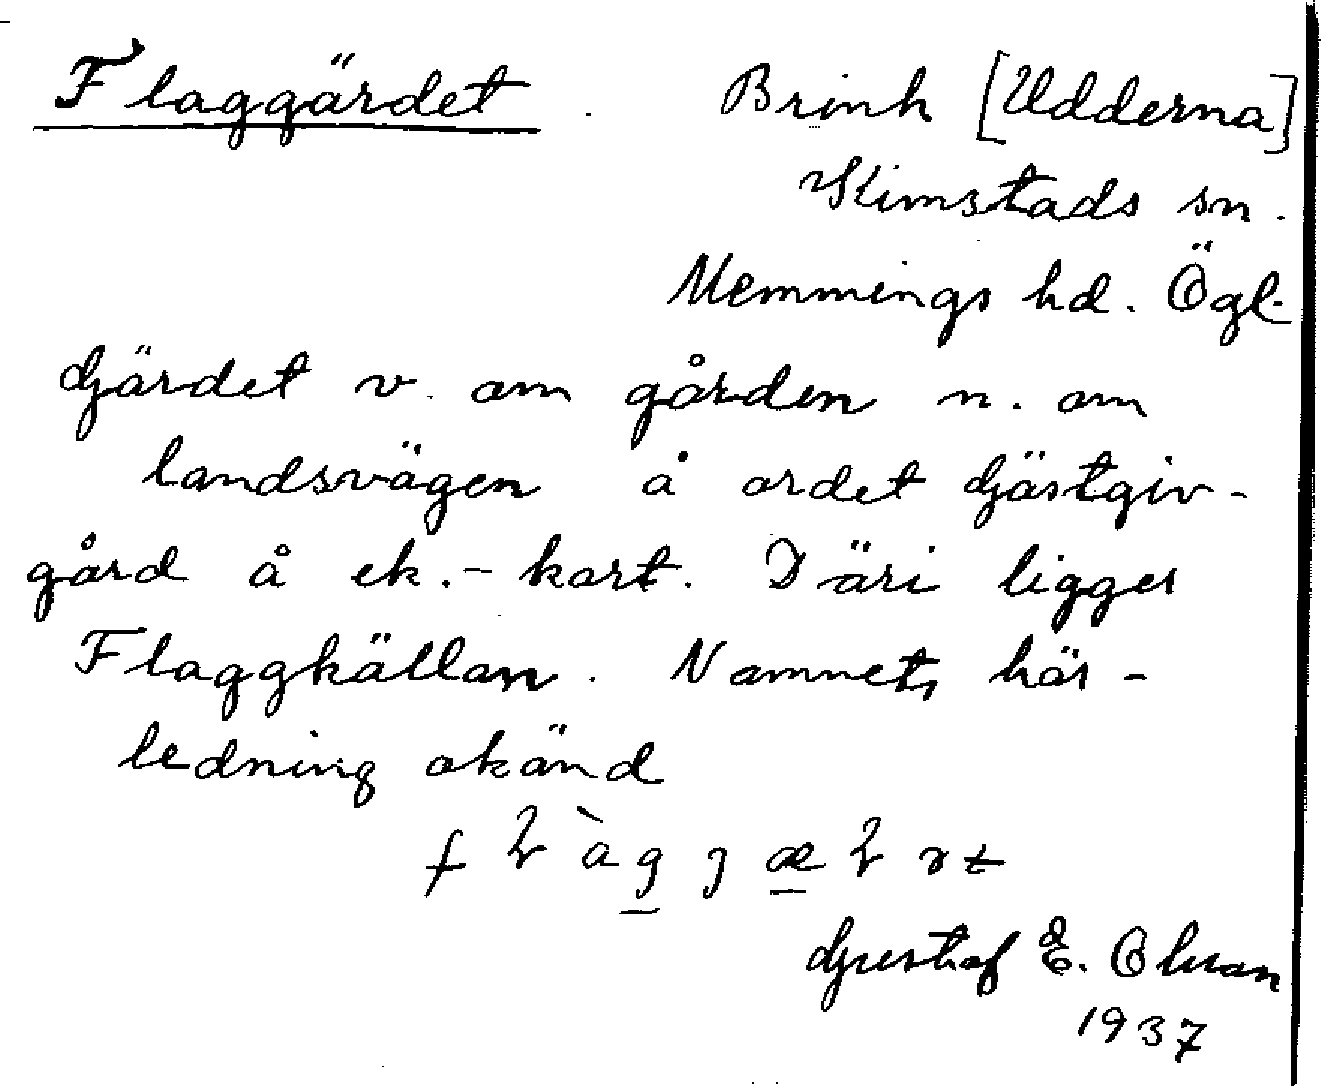 Flaggärdet. Brink [Udderna]
Kimstads sn.
Memmings hd. Ögl.
Gärdet v. om gården n. om
landsvägen å ordet Gästgiv-
gård å ek.-kart. Däri ligger
Flaggkällan. Namnets här-
ledning okänd
Gustaf E. Olson
1937